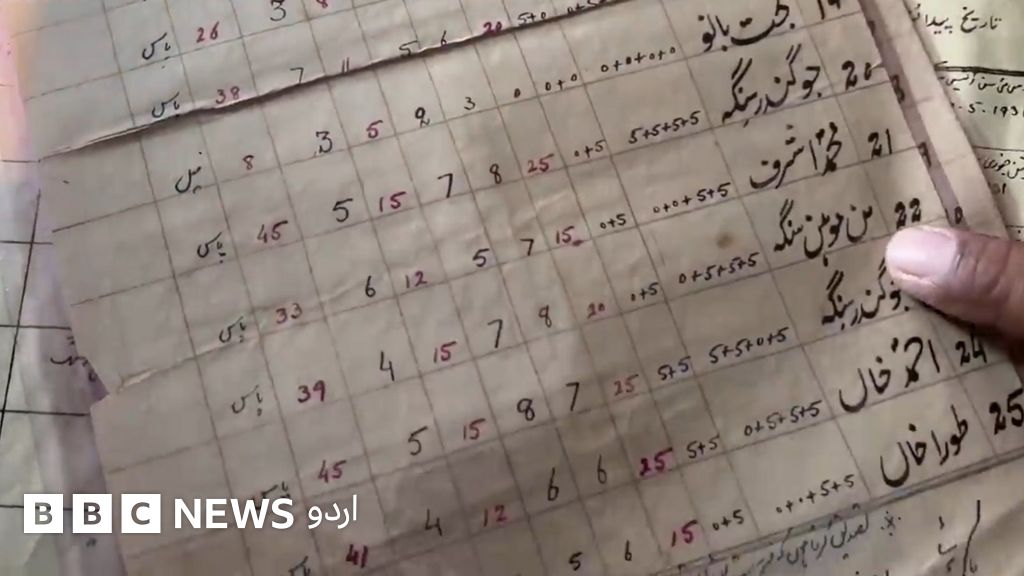 8 3 26 پاس
5+0 20 6 5 11 7 38 پاس
19 بخت بانو 0+0+0+0 0+0 0 3 2 5 3 8
20 جوگندر سنگھ 5+5+5+5 0+5 25 8 7 15 5 45 پاس
21 محمد اشرف 0+0+5+5 0+5 15 7 5 12 6 33 پاس
22 من موہن سنگھ 0+5+5+5 0+5 20 8 7 15 4 39 پاس
جوگندر سنگھ 5+5+0+5 5+5 25 7 8 15 5 45 پاس
24 احمد خان 0+5+5+5 5+5 25 6 6 12 4 41 پاس
25 طورا خان 0+0+5+5 0+5 15 6 5
تاریخ پیدائش
BBC NEWS اردو